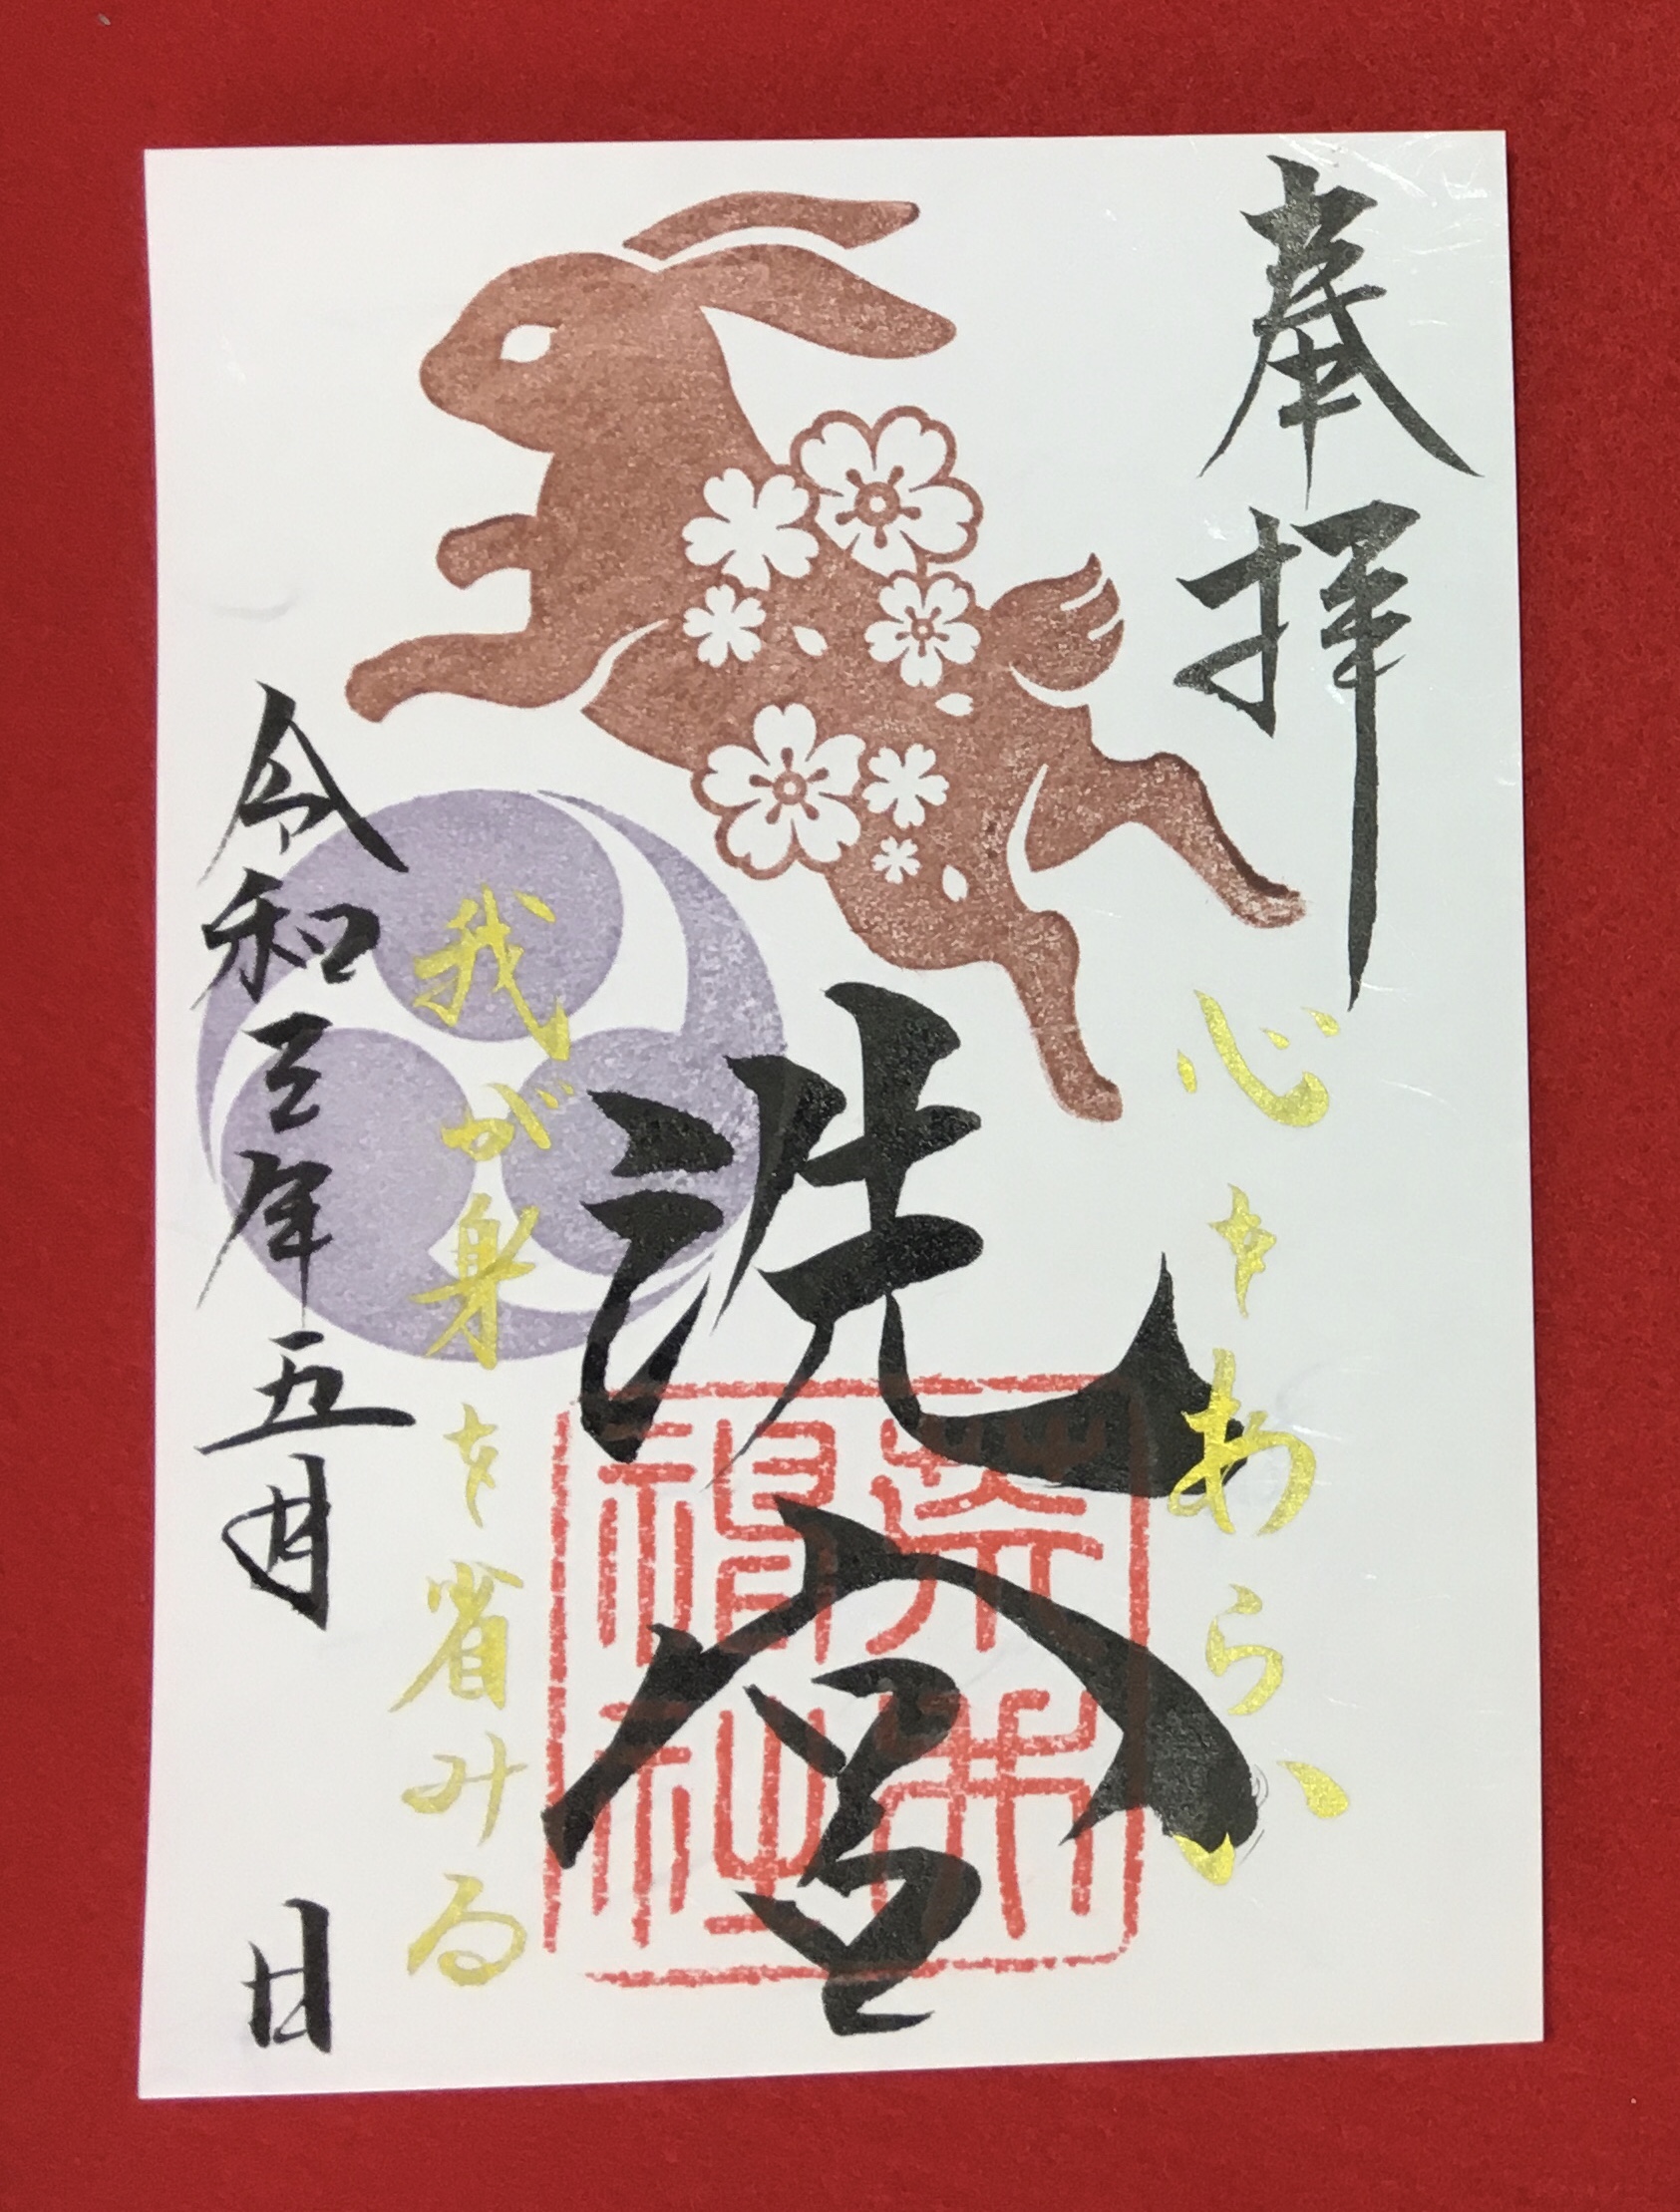 奉拝
心をあらい
洗宮
我が身を省みる
令和三年五月 日